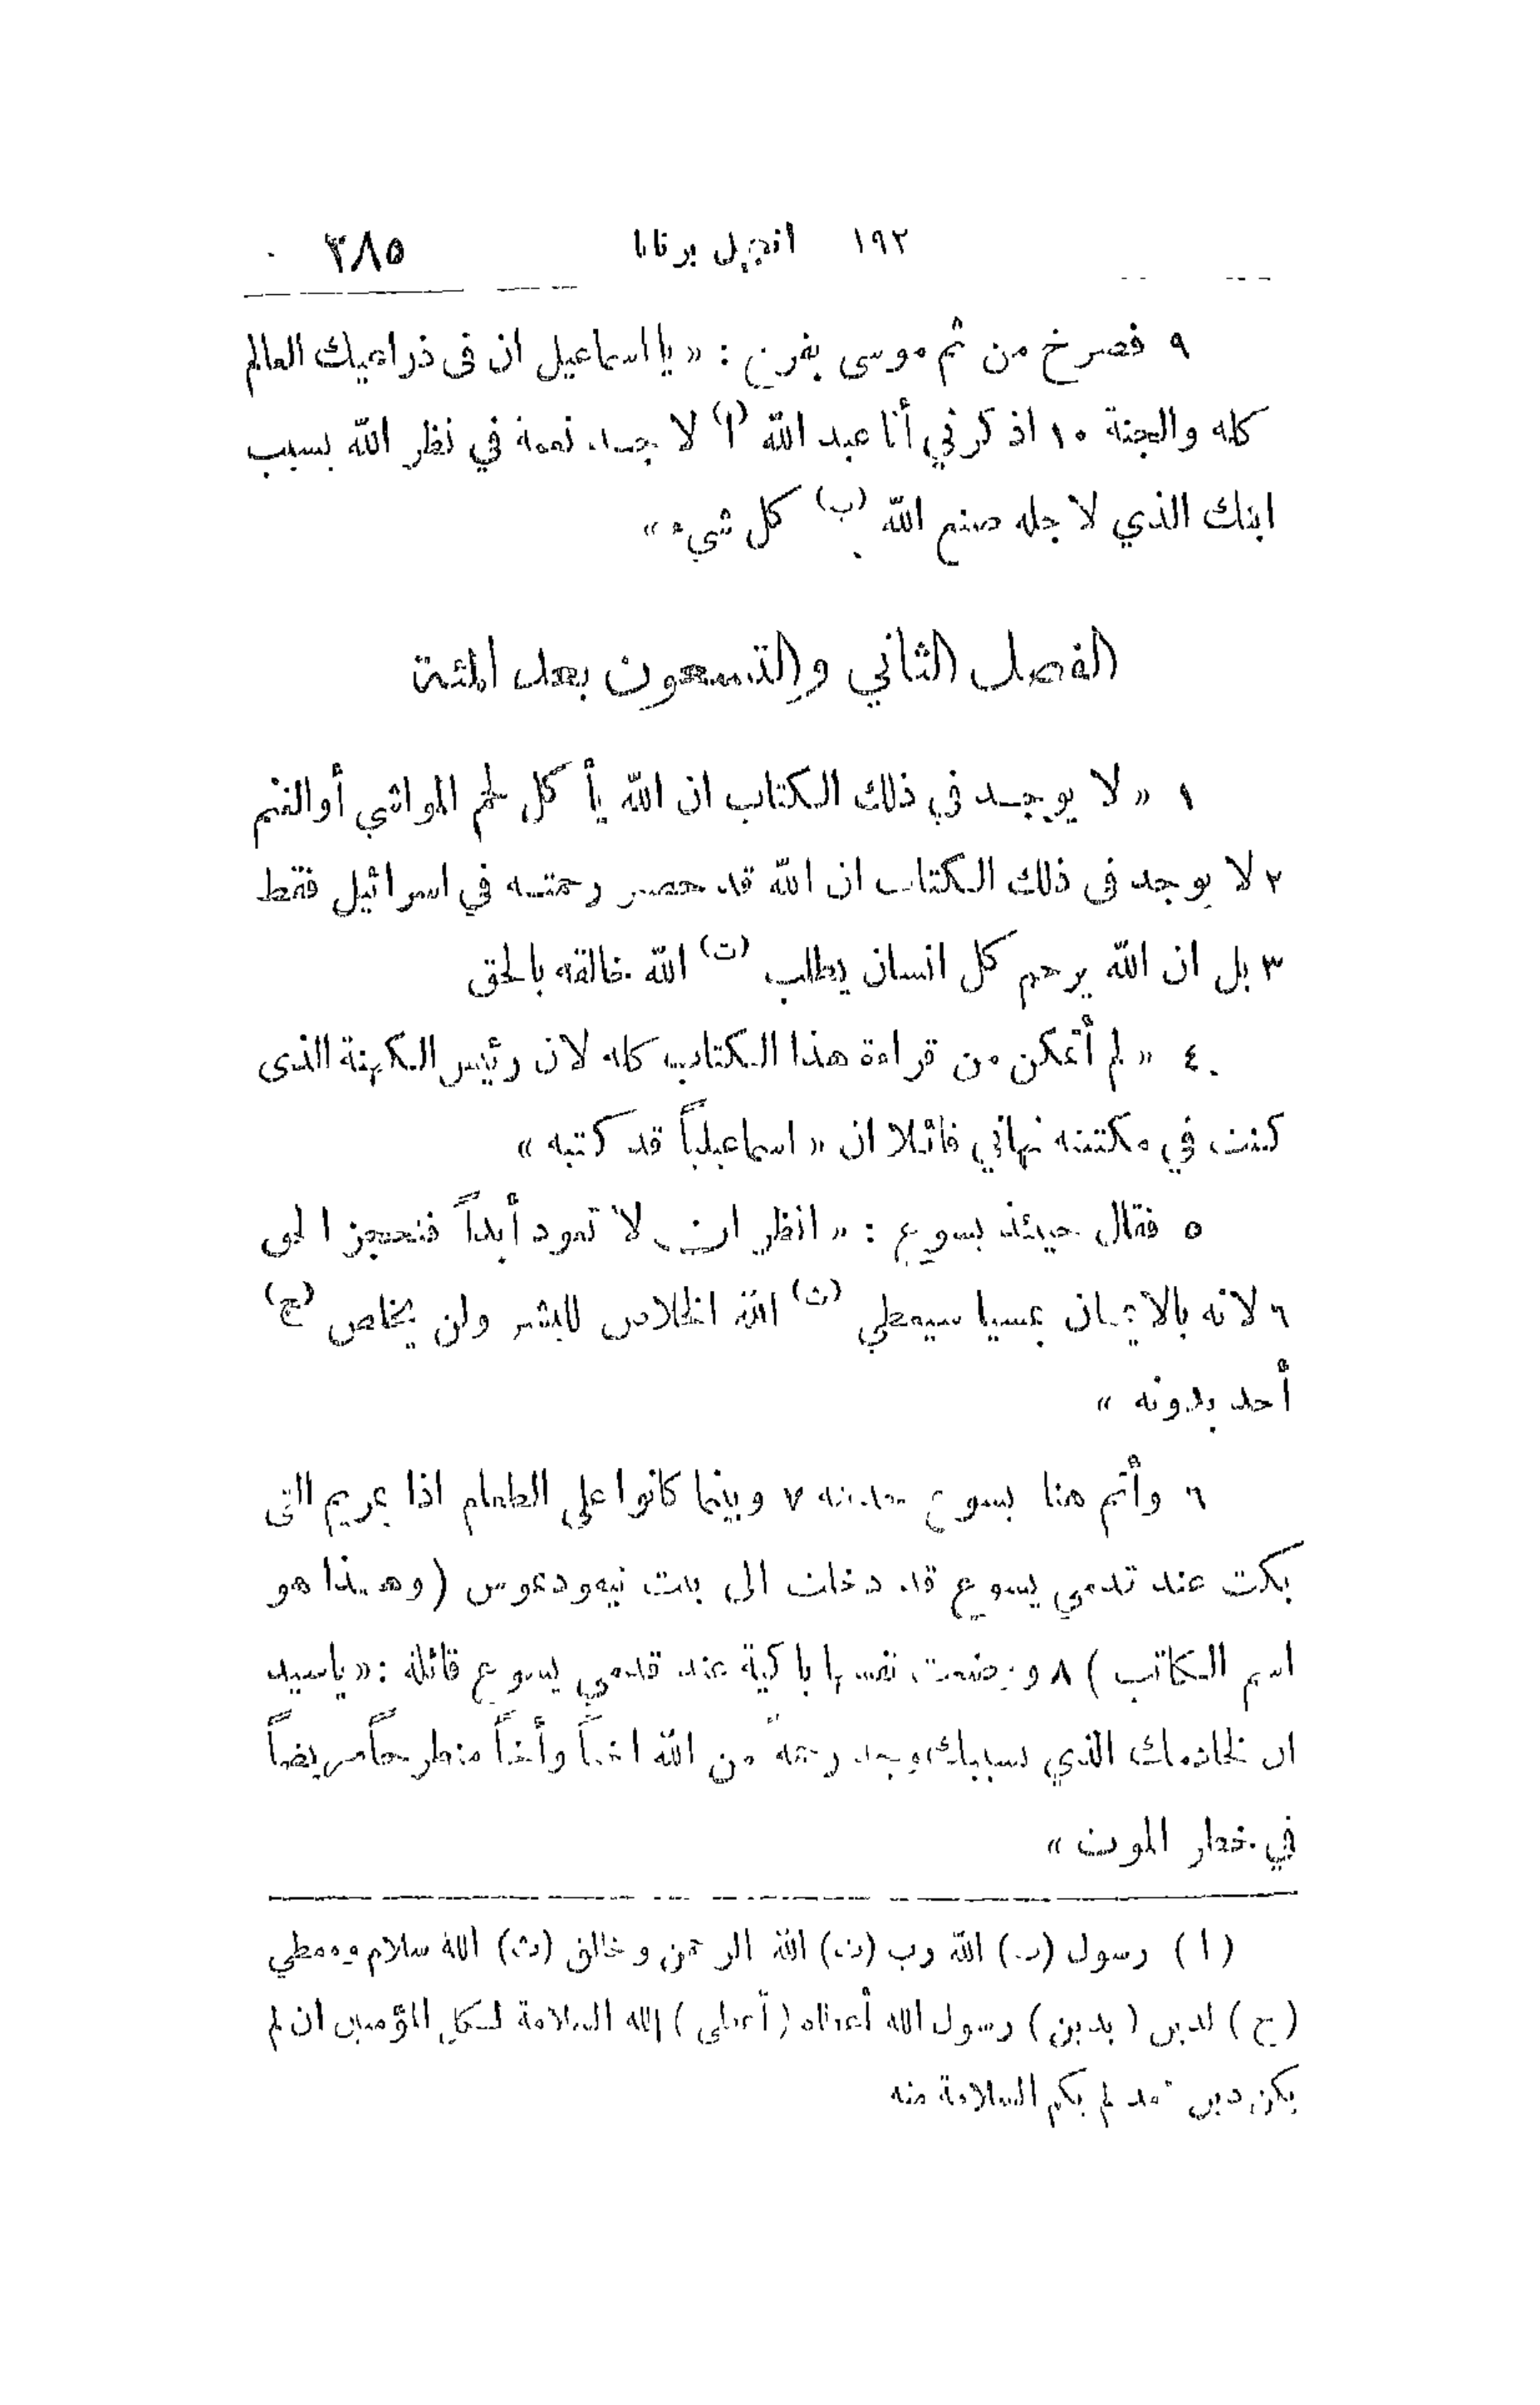 ١٩٢ انجيل برنابا ٢٨٥
٩ فصرخ من ثم موسى بفرح : « يا اسماعيل ان فى ذراعيك العالم
كله والجنة ١٠ اذكرني أنا عبد الله (ا) لا جد نعمة في نظر الله بسبب
ابنك الذي لاجله صنع الله (ب) كل شيء »
الفصل الثاني والتسعون بعد المئة
١ « لا يوجد في ذلك الكتاب ان الله يأكل لحم المواشي أو الغنم
٢ لا يوجد فى ذلك الكتاب ان الله قد حصر رحمته في اسرائيل فقط
٣ بل ان الله يرحم كل انسان يطلب (ت) الله خالقه بالحق
٤ « لم أتمكن من قراءة هذا الكتاب كله لان رئيس الكهنة الذى
كنت في مكتبته نهاني قائلا ان « اسماعيلياً قد كتبه »
٥ فقال حينئذ يسوع : « انظر ان لا تعود أبداً فتحجز الحق
٦ لانه بالايمان بمسيا سيعطي (ث) الله الخلاص للبشر ولن يخلص (ج)
أحد بدونه »
٦ وأتم هنا يسوع حديثه ٧ وبينما كانوا على الطعام اذا بمريم التى
بكت عند قدمي يسوع قد دخلت الى بيت نيقوديموس ( وهذا هو
اسم الكاتب ) ٨ ووضعت نفسها باكية عند قدمي يسوع قائلة : « ياسيد
ان لخادمك الذي بسببك وجد رحمة من الله اختاً وأخاً منطرحاً مريضاً
في خطر الموت »
( ا ) رسول (ب) الله رب (ت) الله الرحمن وخالق (ث) الله سلام ومعطي
( ج ) لدين ( بدين ) رسول الله أعطاه ( أعطى ) الله السلامة لكل المؤمنين ان لم
يكن دين لم يكم السلامة منه